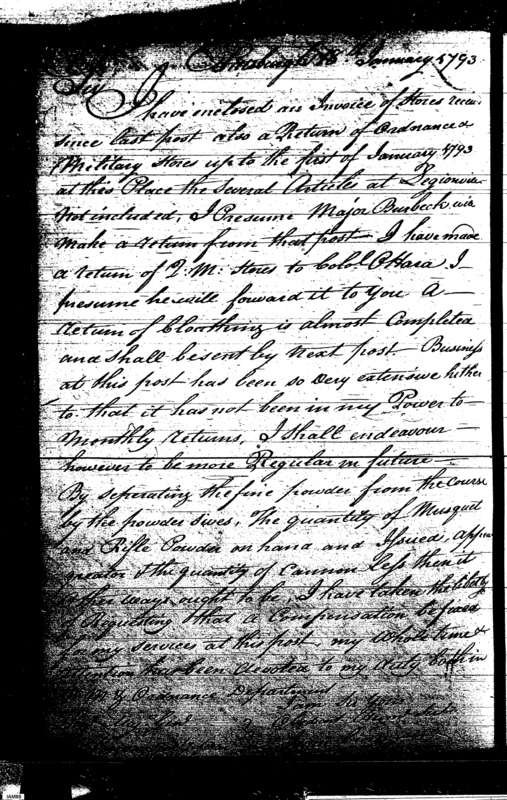 Pittsburgh 18th January 1793
Sir
I have inclosed an Invoice of Stores
since last post also a Return of Ordnance &
Military Stores up to the first of January 1793
at this Place the Several Articles at Legionville
Not included, I Presume Major Burbeck will
Make a return from that post I have made
a return of Q: M: Stores to Colo. OHara I
presume he will forward it to You A
return of Cloathing is almost Completed
and shall be sent by Next post Business
at this post has been so very extensive hither
to that it has not been in my Power to
Monthly returns, I shall endeavour
however to be more Regular in future
By seperating the fine powder from the Course
by the powder sives, The quantity of Musquet
and Rifle Powder on hand and Issued, appear
greator & the quantity of Cannon Less then it
other ways ought to be, I have taken the liberty
of Requesting that a Compensation be fixed
for my services at this post my whole time &
attention has been devoted to my duty both in
Ordnance Department